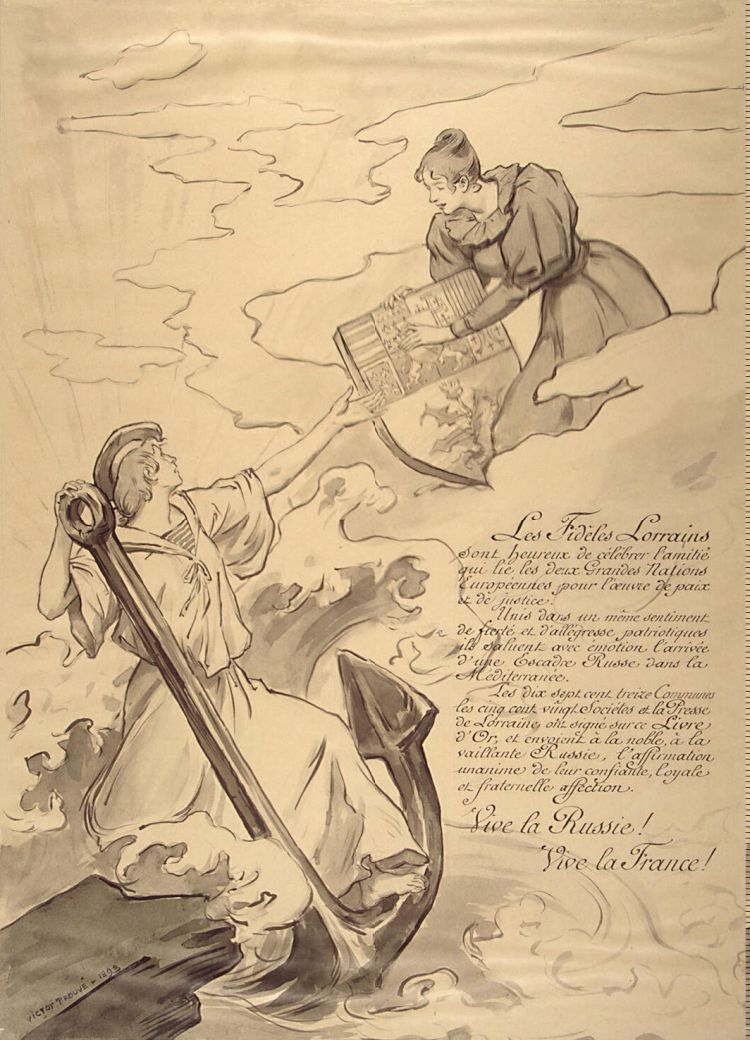 Les Fidèles Lorrains
sont heureux de célébrer l'amitié
qui lie les deux Grandes Nations
Européennes pour l'œuvre de paix
et de justice.
Unis dans un même sentiment
de fierté et d'allégresse patriotiques
ils saluent avec émotion l'arrivée
d'une Escadre Russe dans la
Méditerranée.
Les dix sept cent treize Communes
les cinq cent vingt Sociétés et la Presse
de Lorraine, ont signé sur ce Livre
d'Or, et envoient à la noble, à la
vaillante Russie, l'affirmation
unanime de leur confiante, loyale
et fraternelle affection.
Vive la Russie!
Vive la France!
VICTOR PROUVÉ - 1893